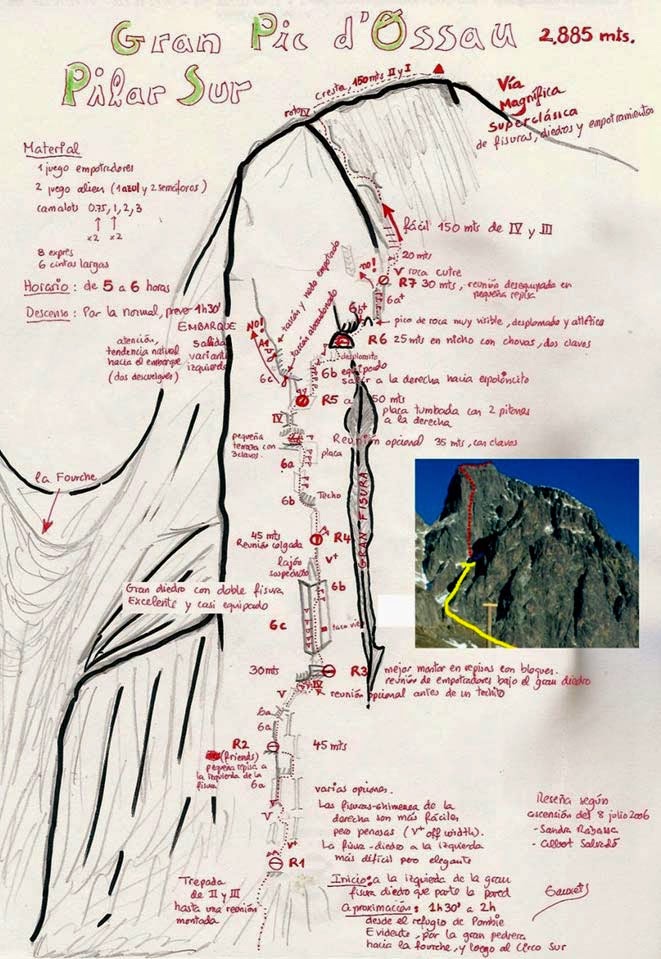 Gran Pic d'Ossau 2,885 mts.
Pilar Sur
Cresta 150 mts II y I
roto IV
Vía
Magnífica
superclásica
de fisuras, diedros y empotramientos
Material
1 juego empotradores
2 juego aliens (1 azul y 2 semáforos)
camalots 0.75, 1, 2, 3
x2 x2
8 exprés
6 cintas largas
Horario: de 5 a 6 horas
Descenso: Por la normal, prever 1h30'
fácil 150 mts de IV y III
20 mts
V roca cutre
no!
R7 30 mts, reunión desequipada en
pequeña repisa
6a+
6b+
pico de roca muy visible, desplomado y atlético
tascón y nudo empotrado
tascón abandonado
EMBARQUE
NO!
A1
atención,
tendencia natural
hacia el embarque
(dos descuelgues)
salida
variante
izquierda
6c
R6 25 mts en nicho con chovas, dos claves
desplomito
6b equipado
salir a la derecha hacia espoloncito
R5 a 50 mts
placa tumbada con 2 pitones
a la derecha
IV
Reunión opcional 35 mts, con claves
pequeña
terraza con
3 claves.
placa
6a
6b
Techo
GRAN FISURA
la Fourche
45 mts
Reunión colgada
R4
V+
lajón
sospechoso
Gran diedro con doble fisura
Excelente y casi equipado
6b
6c
30 mts
R3 mejor montar en repisas con bloques.
reunión de empotradores bajo el gran diedro
IV
reunión opcional antes de un techito
V
6a
6a
R2
(friends)
pequeña repisa a
la izquierda de la
fisura
45 mts
6a
V
V+
varias opciones.
Las fisuras-chimenea de la
derecha son más fáciles
pero penosas (V+ off width).
La fisura-diedro a la izquierda
más difícil pero elegante
R1
Trepada
de II y III
hasta una reunión
montada
Inicio: a la izquierda de la gran
fisura diedro que parte la pared
Aproximación: 1h30' a 2h
desde el refugio de Pombie
Evidente, por la gran pedrera
hacia la fourche, y luego al Circo Sur
Reseña según
ascensión del 8 julio 2006
- Sandra Rabassa
- Albert Salvadó